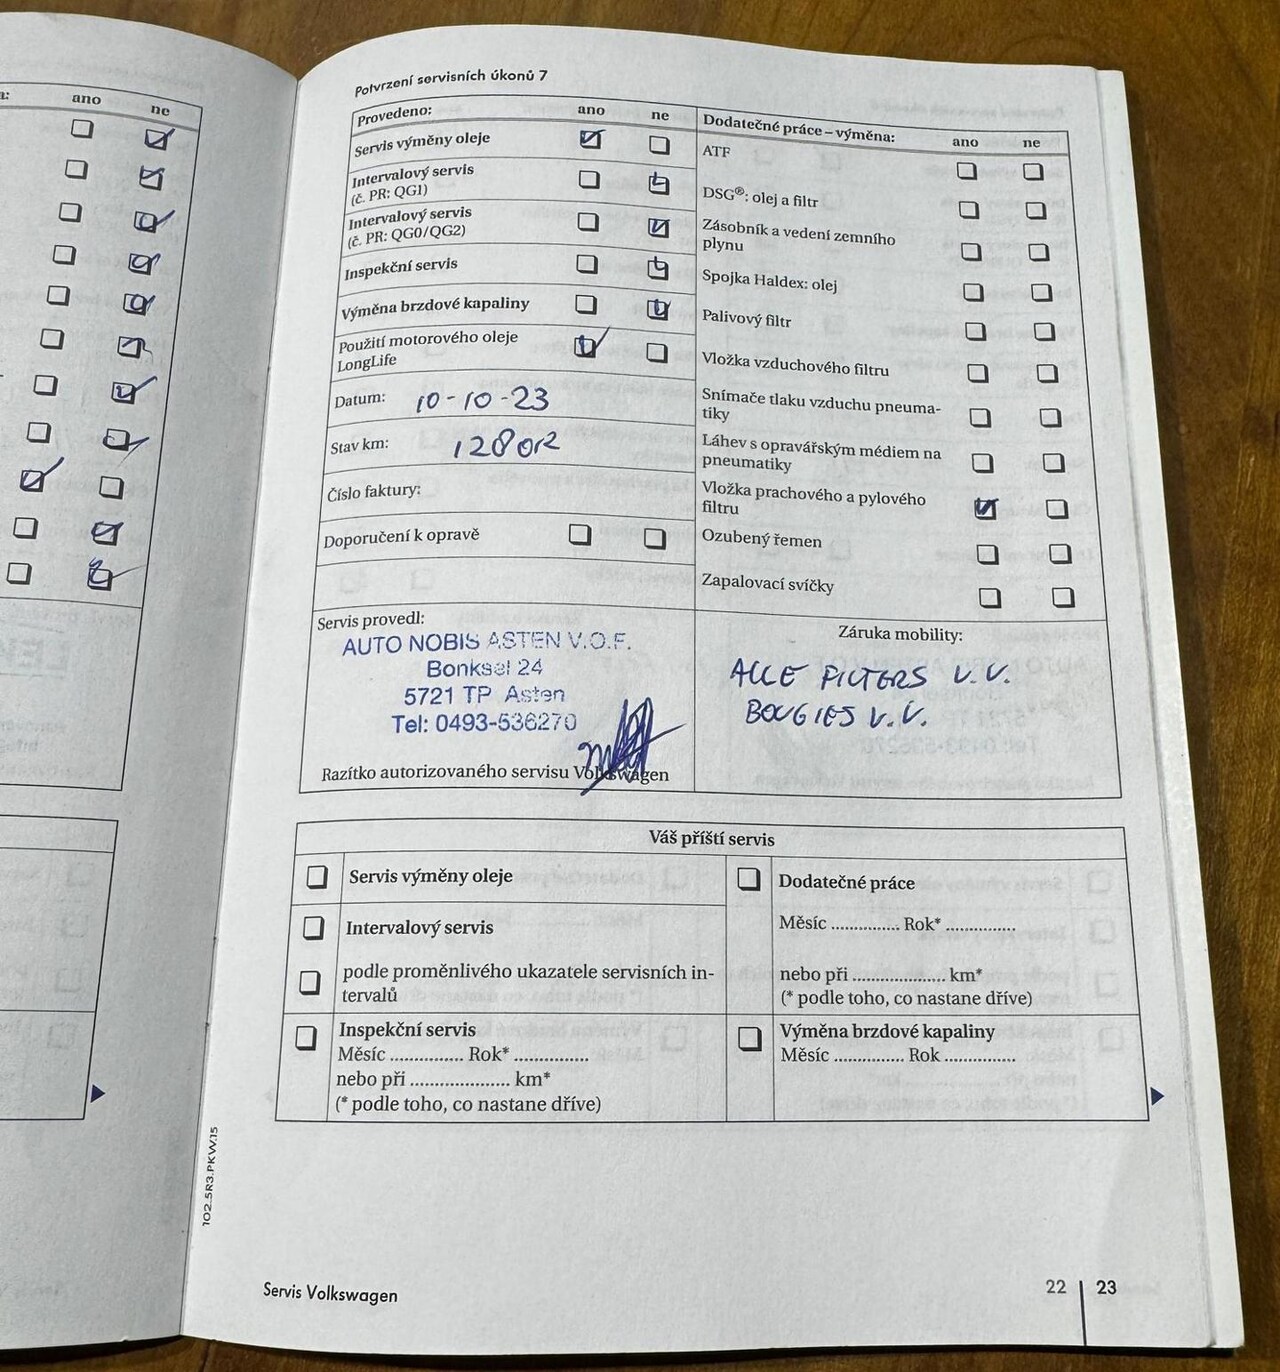 a:
ano
ne
Potvrzení servisních úkonů 7
Provedeno:
ano
ne
Servis výměny oleje
Intervalový servis
(č. PR: QG1)
Intervalový servis
(č. PR: QG0/QG2)
Inspekční servis
Výměna brzdové kapaliny
Použití motorového oleje
LongLife
Datum: 10-10-23
Stav km:
Číslo faktury:
Doporučení k opravě
Servis provedl:
AUTO NOBIS ASTEN V.O.F.
Bonksel 24
5721 TP Asten
Tel: 0493-536270
Razítko autorizovaného servisu Volkswagen
Dodatečné práce – výměna:
ano
ne
ATF
DSG®: olej a filtr
Zásobník a vedení zemního
plynu
Spojka Haldex: olej
Palivový filtr
Vložka vzduchového filtru
Snímače tlaku vzduchu pneuma-
tiky
Láhev s opravářským médiem na
pneumatiky
Vložka prachového a pylového
filtru
Ozubený řemen
Zapalovací svíčky
Záruka mobility:
ALLE FILTERS V.V.
BOUGIES V.V.
Váš příští servis
Servis výměny oleje
Intervalový servis
podle proměnlivého ukazatele servisních in-
tervalů
Inspekční servis
Měsíc .............. Rok* ..............
nebo při .................... km*
(* podle toho, co nastane dříve)
Dodatečné práce
Měsíc .............. Rok* ..............
nebo při .................... km*
(* podle toho, co nastane dříve)
Výměna brzdové kapaliny
Měsíc .............. Rok ..............
102.5R3.PKW.15
Servis Volkswagen
22
23